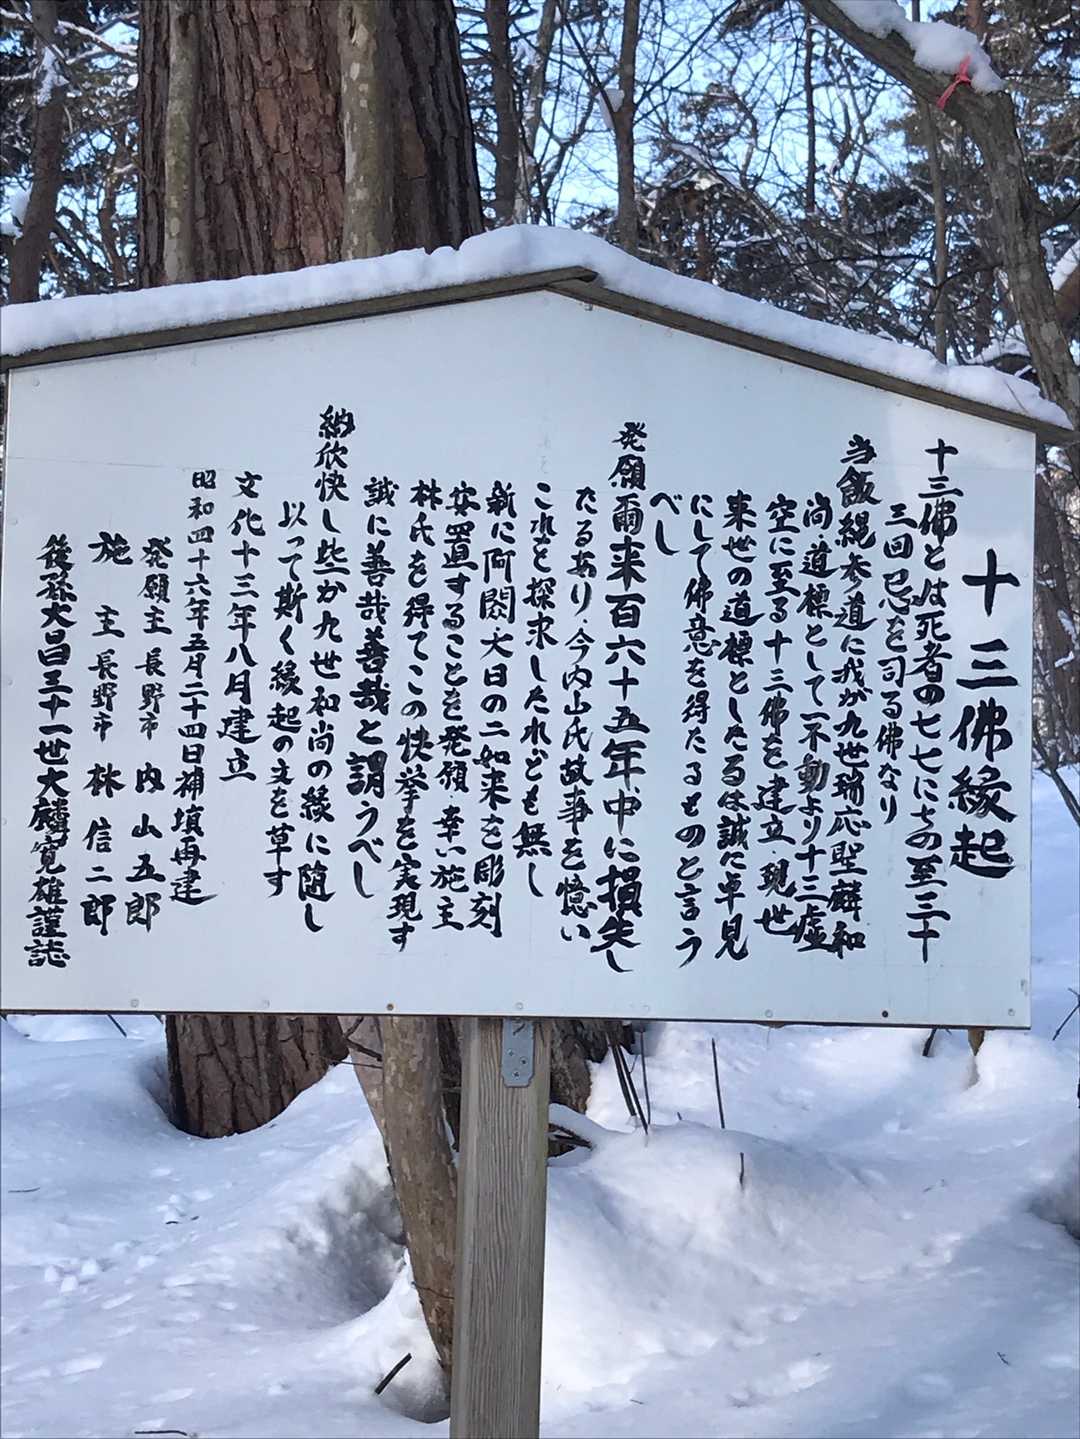 十三佛縁起
十三佛とは死者の七七にちの至三十
三回忌を司る佛なり
当飯縄参道に我が九世瑞応聖麟和
尚・道標として一不動より十三虚
空に至る十三佛を建立・現世
来世の道標としたるは誠に卓見
にして佛意を得たるものと言う
べし
発願爾来百六十五年、中に損失し
たるあり・今内山氏故事を憶い
これを探求したれども無し
新に阿閦・大日の二如来を彫刻
安置することを発願・幸い施主
林氏を得てこの快挙を実現す
誠に善哉善哉と謂うべし
納欣快し些か九世和尚の縁に随し
以って斯く縁起の文を草す
文化十三年八月建立
昭和四十六年五月二十四日補填再建
発願主 長野市 内山五郎
施 主 長野市 林 信二郎
後孫大昌三十一世大麟寛雄謹誌